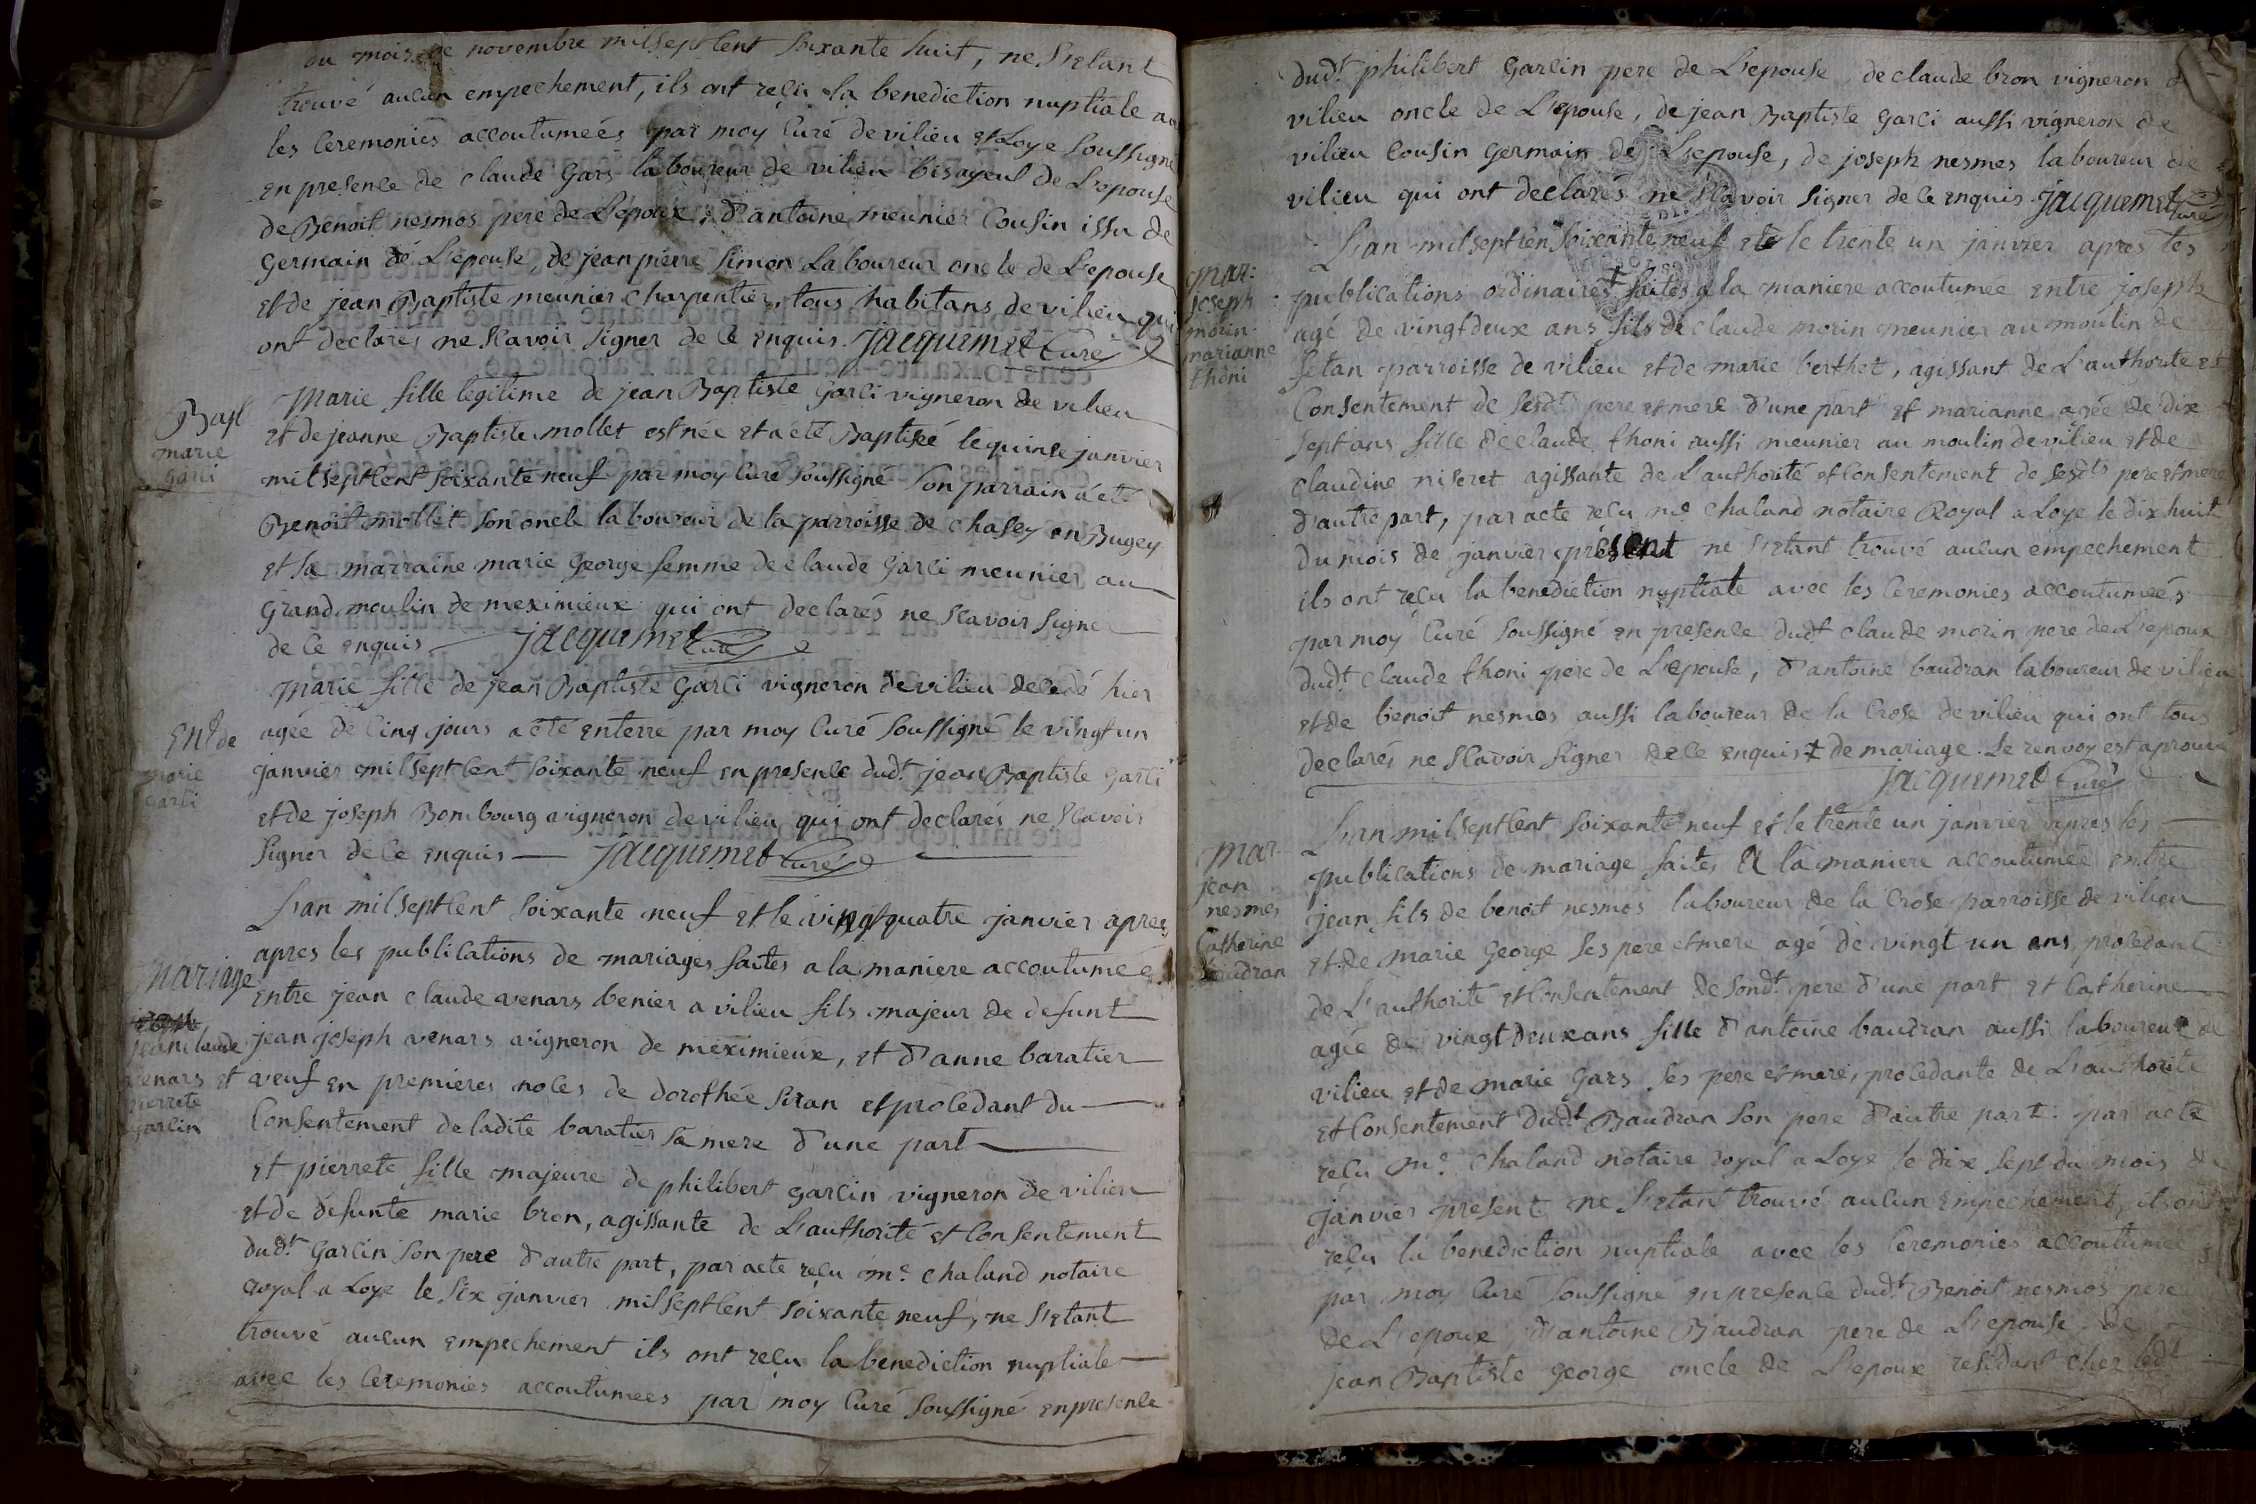 du mois de novembre mil sept Cent soixante huit, ne s'etant
trouvé aucun empechement, ils ont reçu la benediction nuptiale av
les Ceremonies accoutumeés par moy Curé de vilieu et Loye Soussigné
en presence de claude Gars laboureur de vilieu bisayeul de L'epouse
de Benoit nesmos pere de L'epoux, d'antoine meunier Cousin issu de
Germain de L'epouse, de jean pierre Simon Laboureur oncle de L'epouse
et de jean Baptiste meunier Charpentier, tous habitans de vilieu qui
ont declarés ne sçavoir signer de Ce enquis. Jacquemet Curé
Bapt
marie
garci
Marie fille legitime de jean Baptiste Garci vigneron de vilieu
et de jeanne Baptiste mollet est née et a été Baptiseé le quinse janvier
mil sept Cent soixante neuf par moy Curé soussigné Son parrain a été
Benoit mollet son oncle laboureur de la parroisse de chasey en Bugey
et sa marraine marie George femme de claude Garci meunier au
Grand moulin de meximieux qui ont declarés ne sçavoir signer
de Ce enquis. Jacquemet Curé
Ent de
marie
Garci
Marie fille de jean Baptiste Garci vigneron de vilieu decedé hier
agée de Cinq jours a été enterré par moy Curé Soussigné le vingt un
janvier mil sept Cent soixante neuf en presence dudt jean Baptiste Garci
et de joseph Bombourg vigneron de vilieu qui ont declarés ne sçavoir
signer de Ce enquis Jacquemet Curé
Mariage
jean claude
venars et
pierrete
garcin
L'an mil sept Cent soixante neuf et le vingt quatre janvier apres
apres les publications de mariages faites a la maniere accoutumeé
entre jean claude venars benier a vilieu fils majeur de defunt
jean joseph venars vigneron de meximieux, et d'anne baratier
veuf en premieres noces de dorothée Siran et procedant du
Consentement de ladite baratier sa mere d'une part
et pierrete fille majeure de philibert garcin vigneron de vilieu
et de defunte marie bron, agissante de L'authorité et Consentement
dudt Garcin son pere d'autre part, par acte reçu me chaland notaire
royal a Loye le Six janvier mil sept Cent soixante neuf, ne s'etant
trouvé aucun empechement ils ont reçu la benediction nuptiale
avec les Ceremonies accoutumees par moy Curé soussigné en presence
dudt philibert Garcin pere de L'epouse, de claude bron vigneron
vilieu oncle de L'epouse, de jean Baptiste Garci aussi vigneron de
vilieu Cousin Germain de L'epouse, de joseph nesmes laboureur de
vilieu qui ont declarés ne sçavoir signer de Ce enquis. Jacquemet Curé
Mar:
joseph
morin
marianne
thoni
L'an mil sept cent soixante neuf et le trente un janvier apres les
publications ordinaires faites a la maniere accoutumee entre joseph
agé de vingt deux ans fils de claude morin meunier au moulin de
setan parroisse de vilieu et de marie berthet, agissant de L'authorité et
Consentement de sesdts pere et mere d'une part et marianne agée de dix
sept ans fille de claude thoni aussi meunier au moulin de vilieu et de
claudine niseret agissante de L'authorité et Consentement de sesdts pere et mere
d'autre part, par acte reçu me chaland notaire Royal a Loye le dix huit
du mois de janvier present ne s'etant trouvé aucun empechement
ils ont reçu la benediction nuptiale avec les Ceremonies accoutumeés
par moy Curé soussigné en presence dudt claude morin pere de L'epoux
dudt claude thoni pere de L'epouse, d'antoine baudran laboureur de vilieu
et de benoit nesmos aussi laboureur de la Crose de vilieu qui ont tous
declarés ne sçavoir signer de Ce enquis ‡ de mariage. le renvoy est aprouvé
Jacquemet Curé
Mar
jean
nesmes
Catherine
baudran
L'an mil sept Cent soixante neuf et le trente un janvier apres les
publications de mariage faites a la maniere accoutumée entre
jean fils de benoit nesmos laboureur de la Crose parroisse de vilieu
et de marie George ses pere et mere agé de vingt un ans, procedant
de L'authorité et Consentement de sondt pere d'une part et Catherine
agée de vingt deux ans fille d'antoine baudran aussi laboureur de
vilieu et de marie Gars ses pere et mere, procedante de L'authorité
et Consentement dudt Baudran son pere d'autre part. par acte
reçu me chaland notaire royal a Loye le dix sept du mois de
janvier present ne s'etant trouvé aucun empechement, ils ont
reçu la benediction nuptiale avec les Ceremonies accoutumeés
par moy Curé soussigné en presence dudt Benoit nesmos pere
de L'epoux, d'antoine Baudran pere de L'epouse, de
jean Baptiste George oncle de L'epoux residant ches ledt